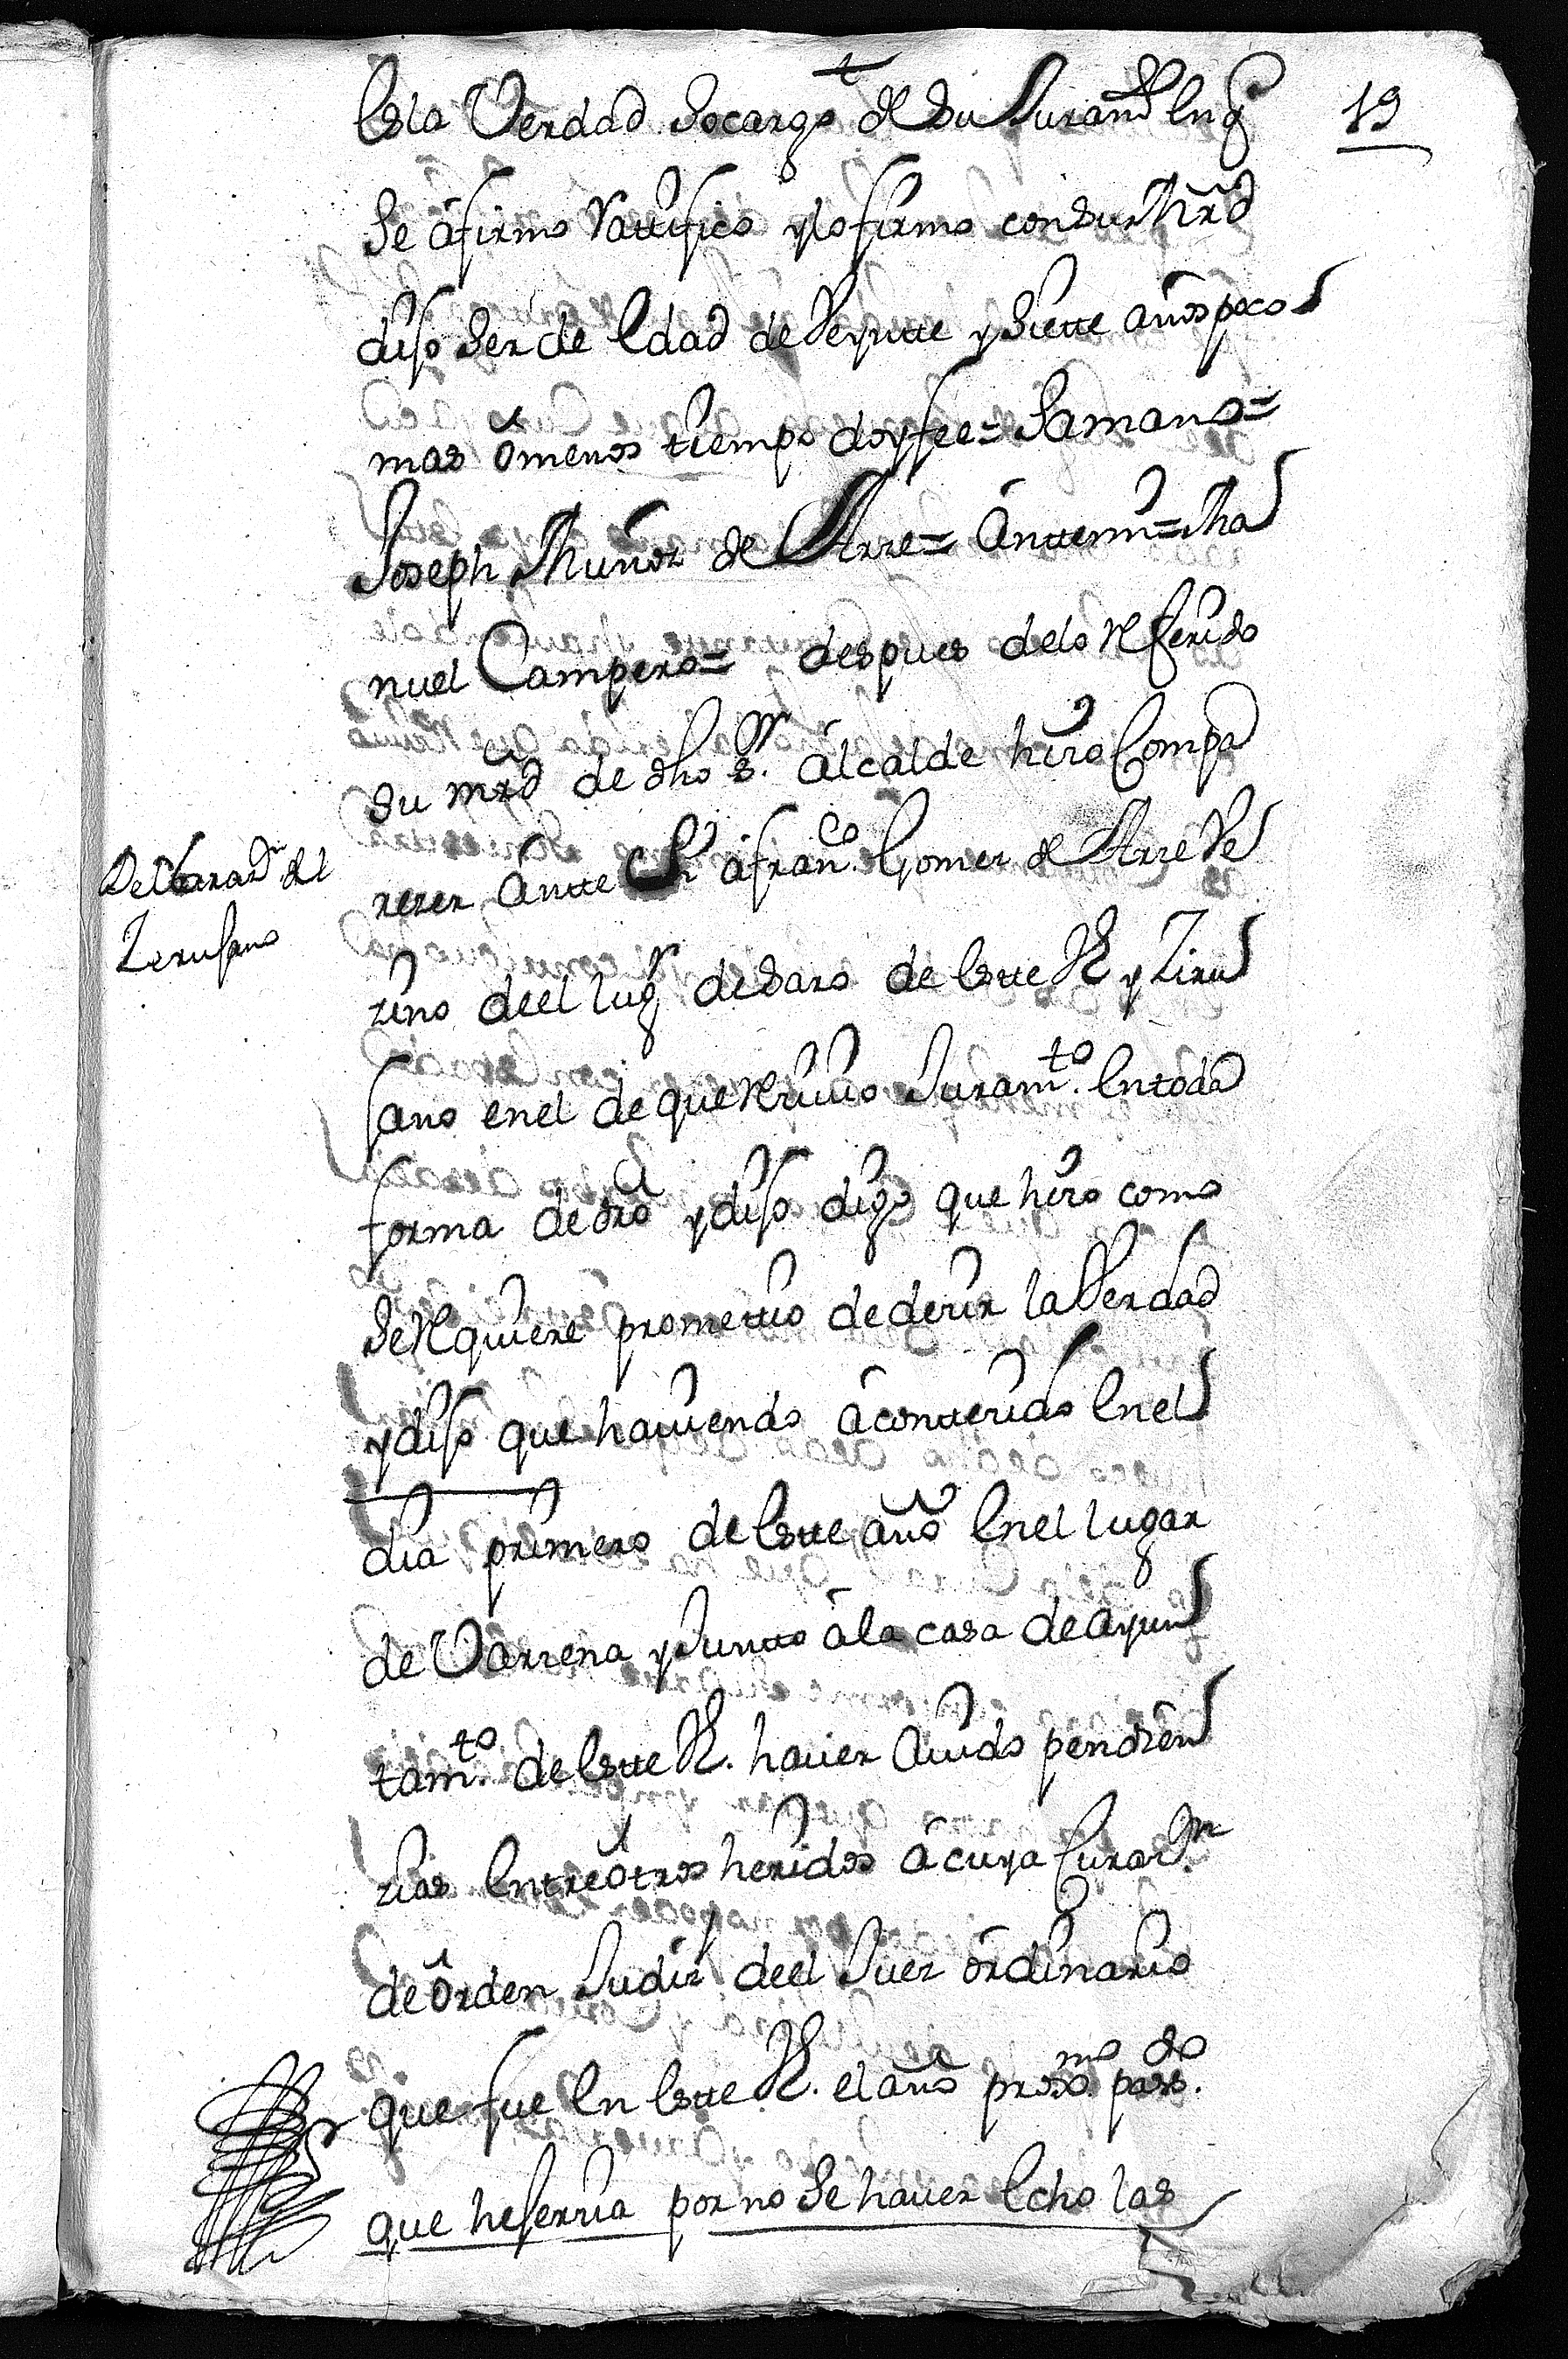 19
Es la Verdad so cargo de su Juramto en q
se áfirmo Rattifico y lo firmo con su Mrd
dijo ser de Edad de Veyntte y Siette años poco
mas ó menos tiempo doy fee = Samano =
Joseph Muñoz de Arze = Ánttemi = Ma
nuel Campero = despues de lo Referido
su mrd de dho sr. álcalde hizo Compa
rezer Ántte Si á franco. Gomez de Arze Ve
zino de el lugr de Saro de Estte Ve y Ziru
Declarazn del
Zerujano
jano en el de que Rezivio Juramto. En toda
forma de dro y dijo digo que hizo como
se Requiere promettio de dezir la Verdad
y dijo que haviendo ácontezido En el
dia primero de Estte año En el lugar
de Varzena y Juntto á la casa de Ayun
tamto. de Estte Ve. haver Avido penden
zias Entre ótros heridos á cuya Curazn.
de órden Judizl de el Juez órdinario
que fue En Estte Ve. el año proxmo. pasdo.
que hejerzia por no Se haver Echo las